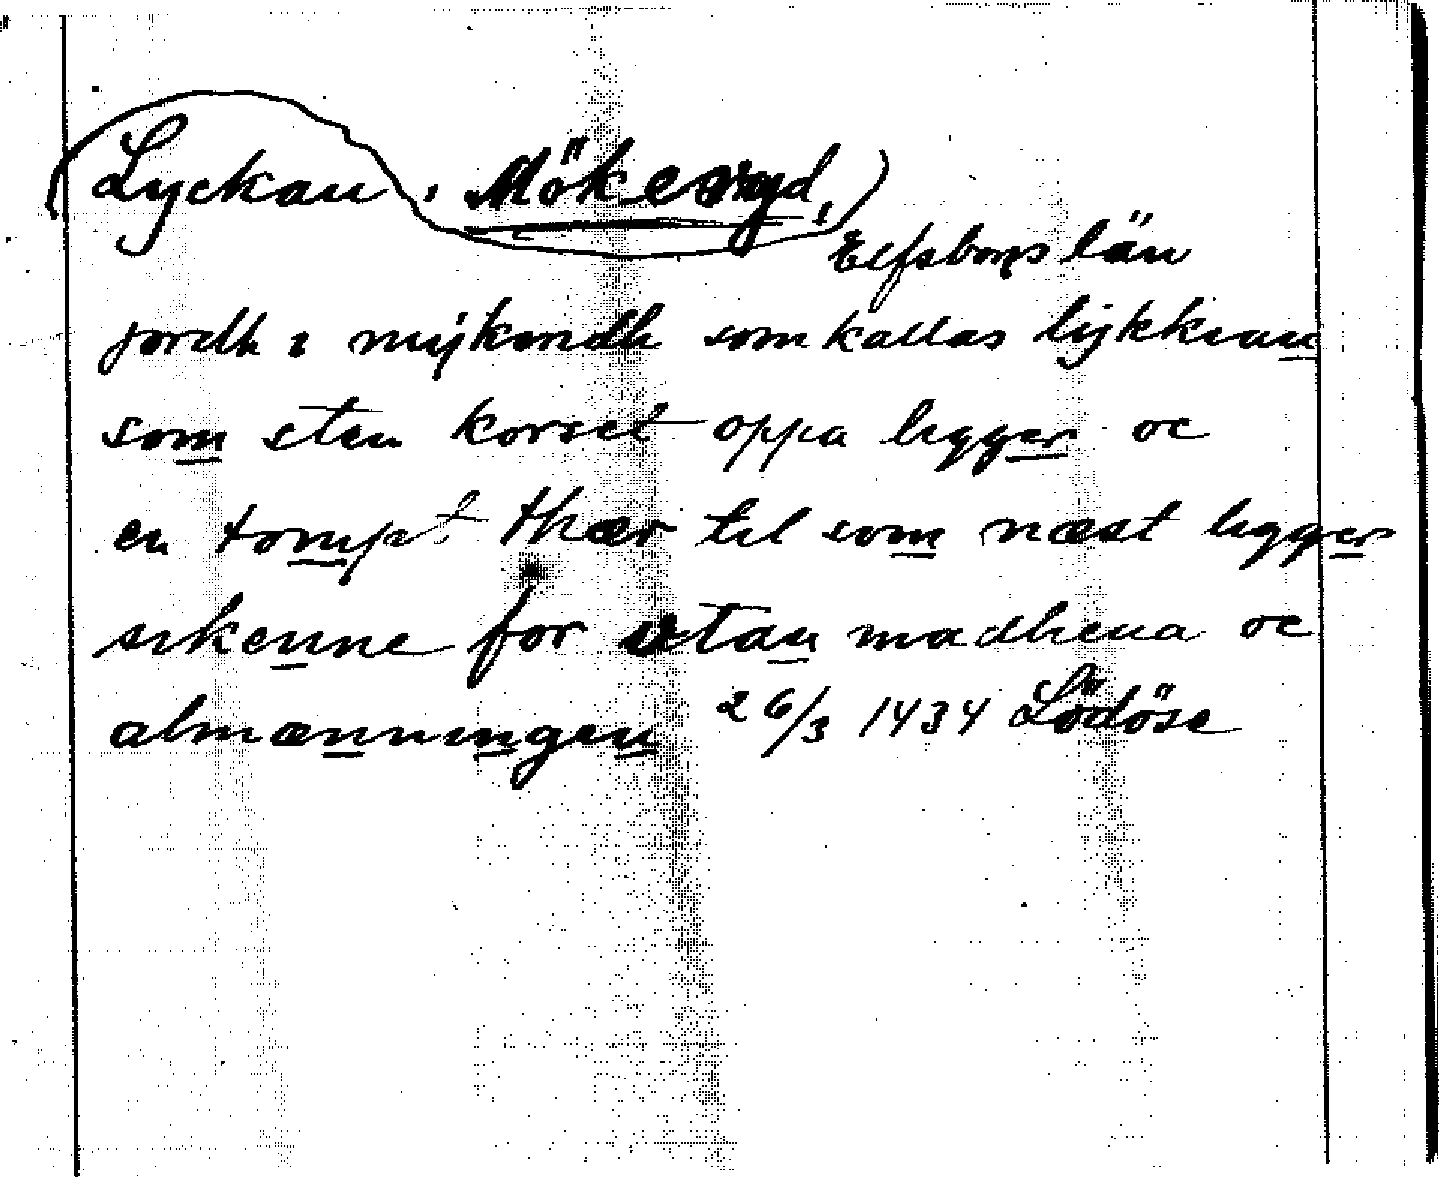 Lyckan, Mökeryd,
Elfsborgs län
jordh i mykördh som kallas lykkian
som sten korset oppa ligger oc
en tompt thær til som næst ligger
sikenne for vtan madhena oc
almænningen 26/3 1434 Lödöse